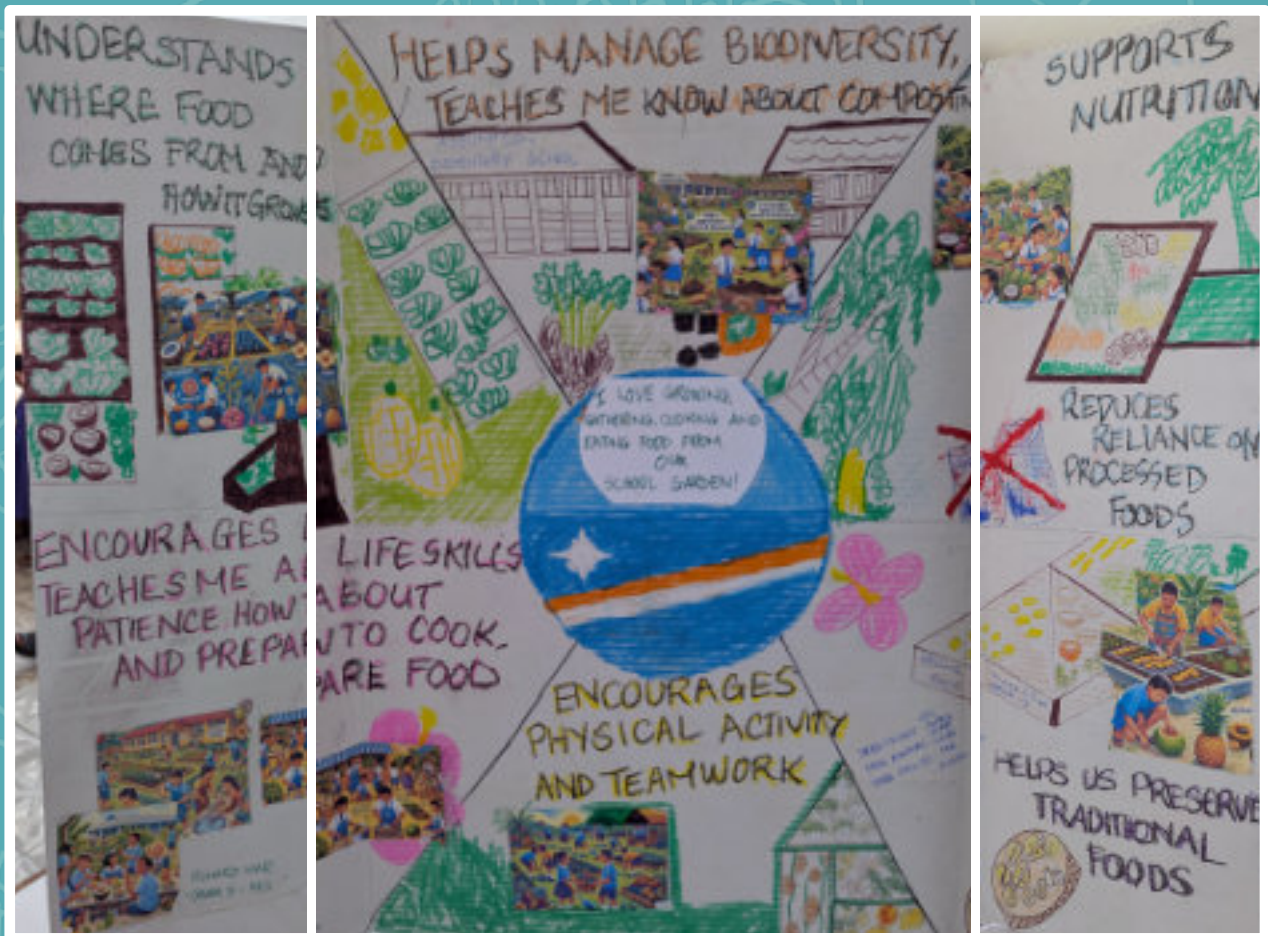 UNDERSTANDS
WHERE FOOD
COMES FROM AND
HOW IT GROWS
ENCOURAGES
TEACHES ME
PATIENCE HOW
AND PREPA
HELPS MANAGE BIODIVERSITY,
TEACHES ME KNOW ABOUT COMPOSTIN
I LOVE GROWING,
GATHERING, COOKING AND
EATING FOOD FROM
OUR
SCHOOL GARDEN!
LIFE SKILLS
ABOUT
TO COOK.
PARE FOOD
ENCOURAGES
PHYSICAL ACTIVITY
AND TEAMWORK
SUPPORTS
NUTRITION
REDUCES
RELIANCE ON
PROCESSED
FOODS
HELPS US PRESERVE
TRADITIONAL
FOODS